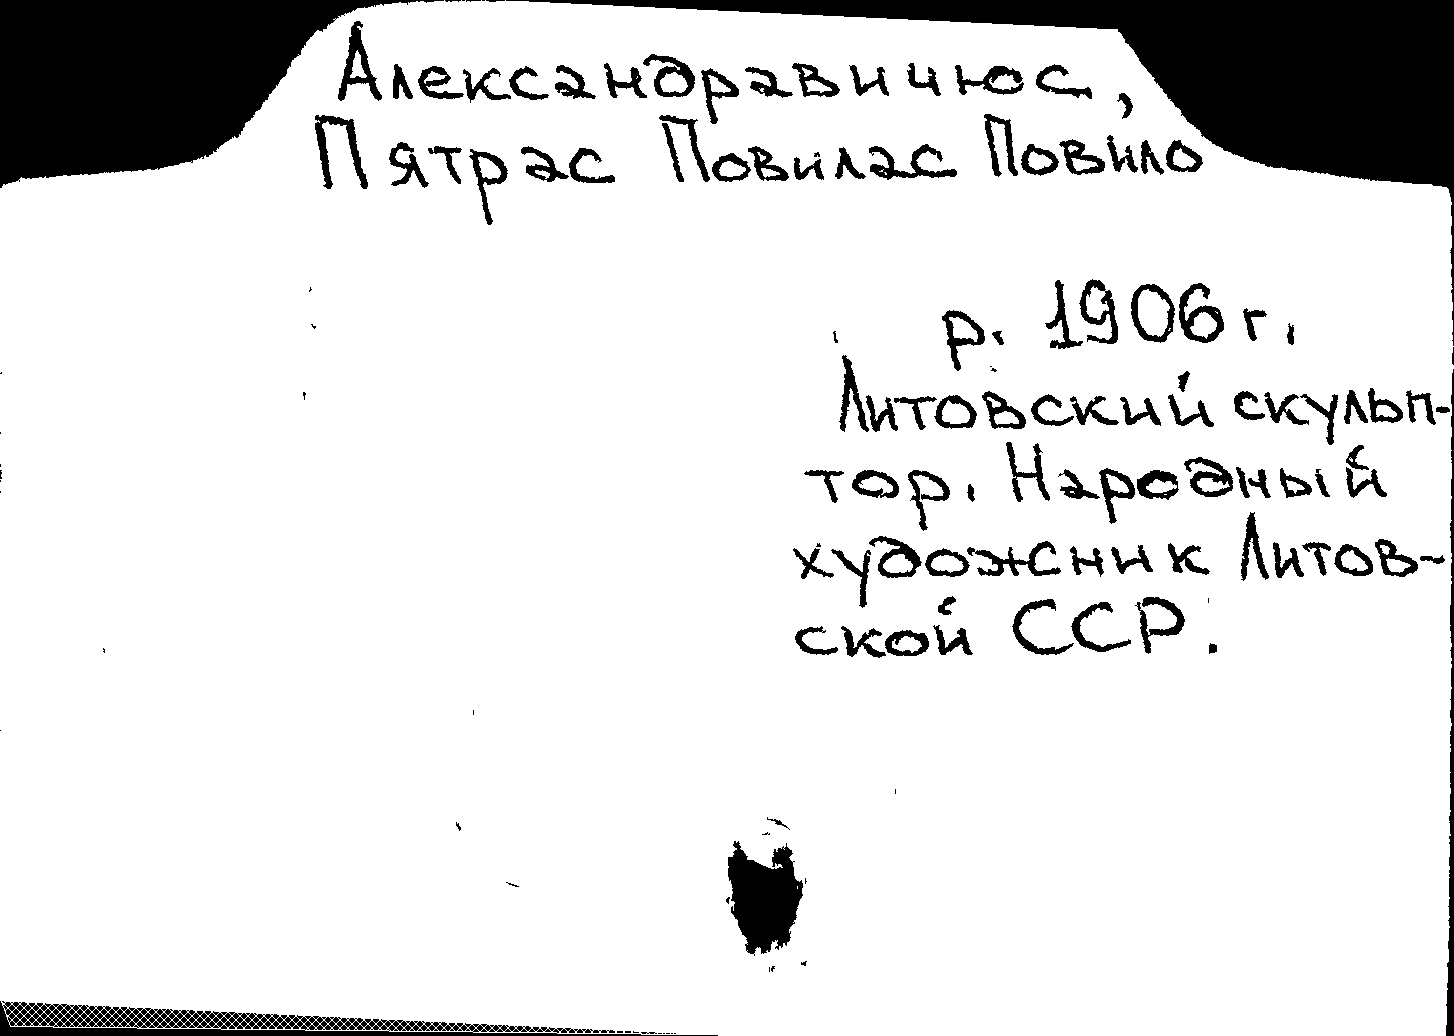 Александравичюс,
Пятрас Повилас Повило
р. 1906 г.
Литовский скульп-
тор. Народный
художник Литов-
ской ССР.